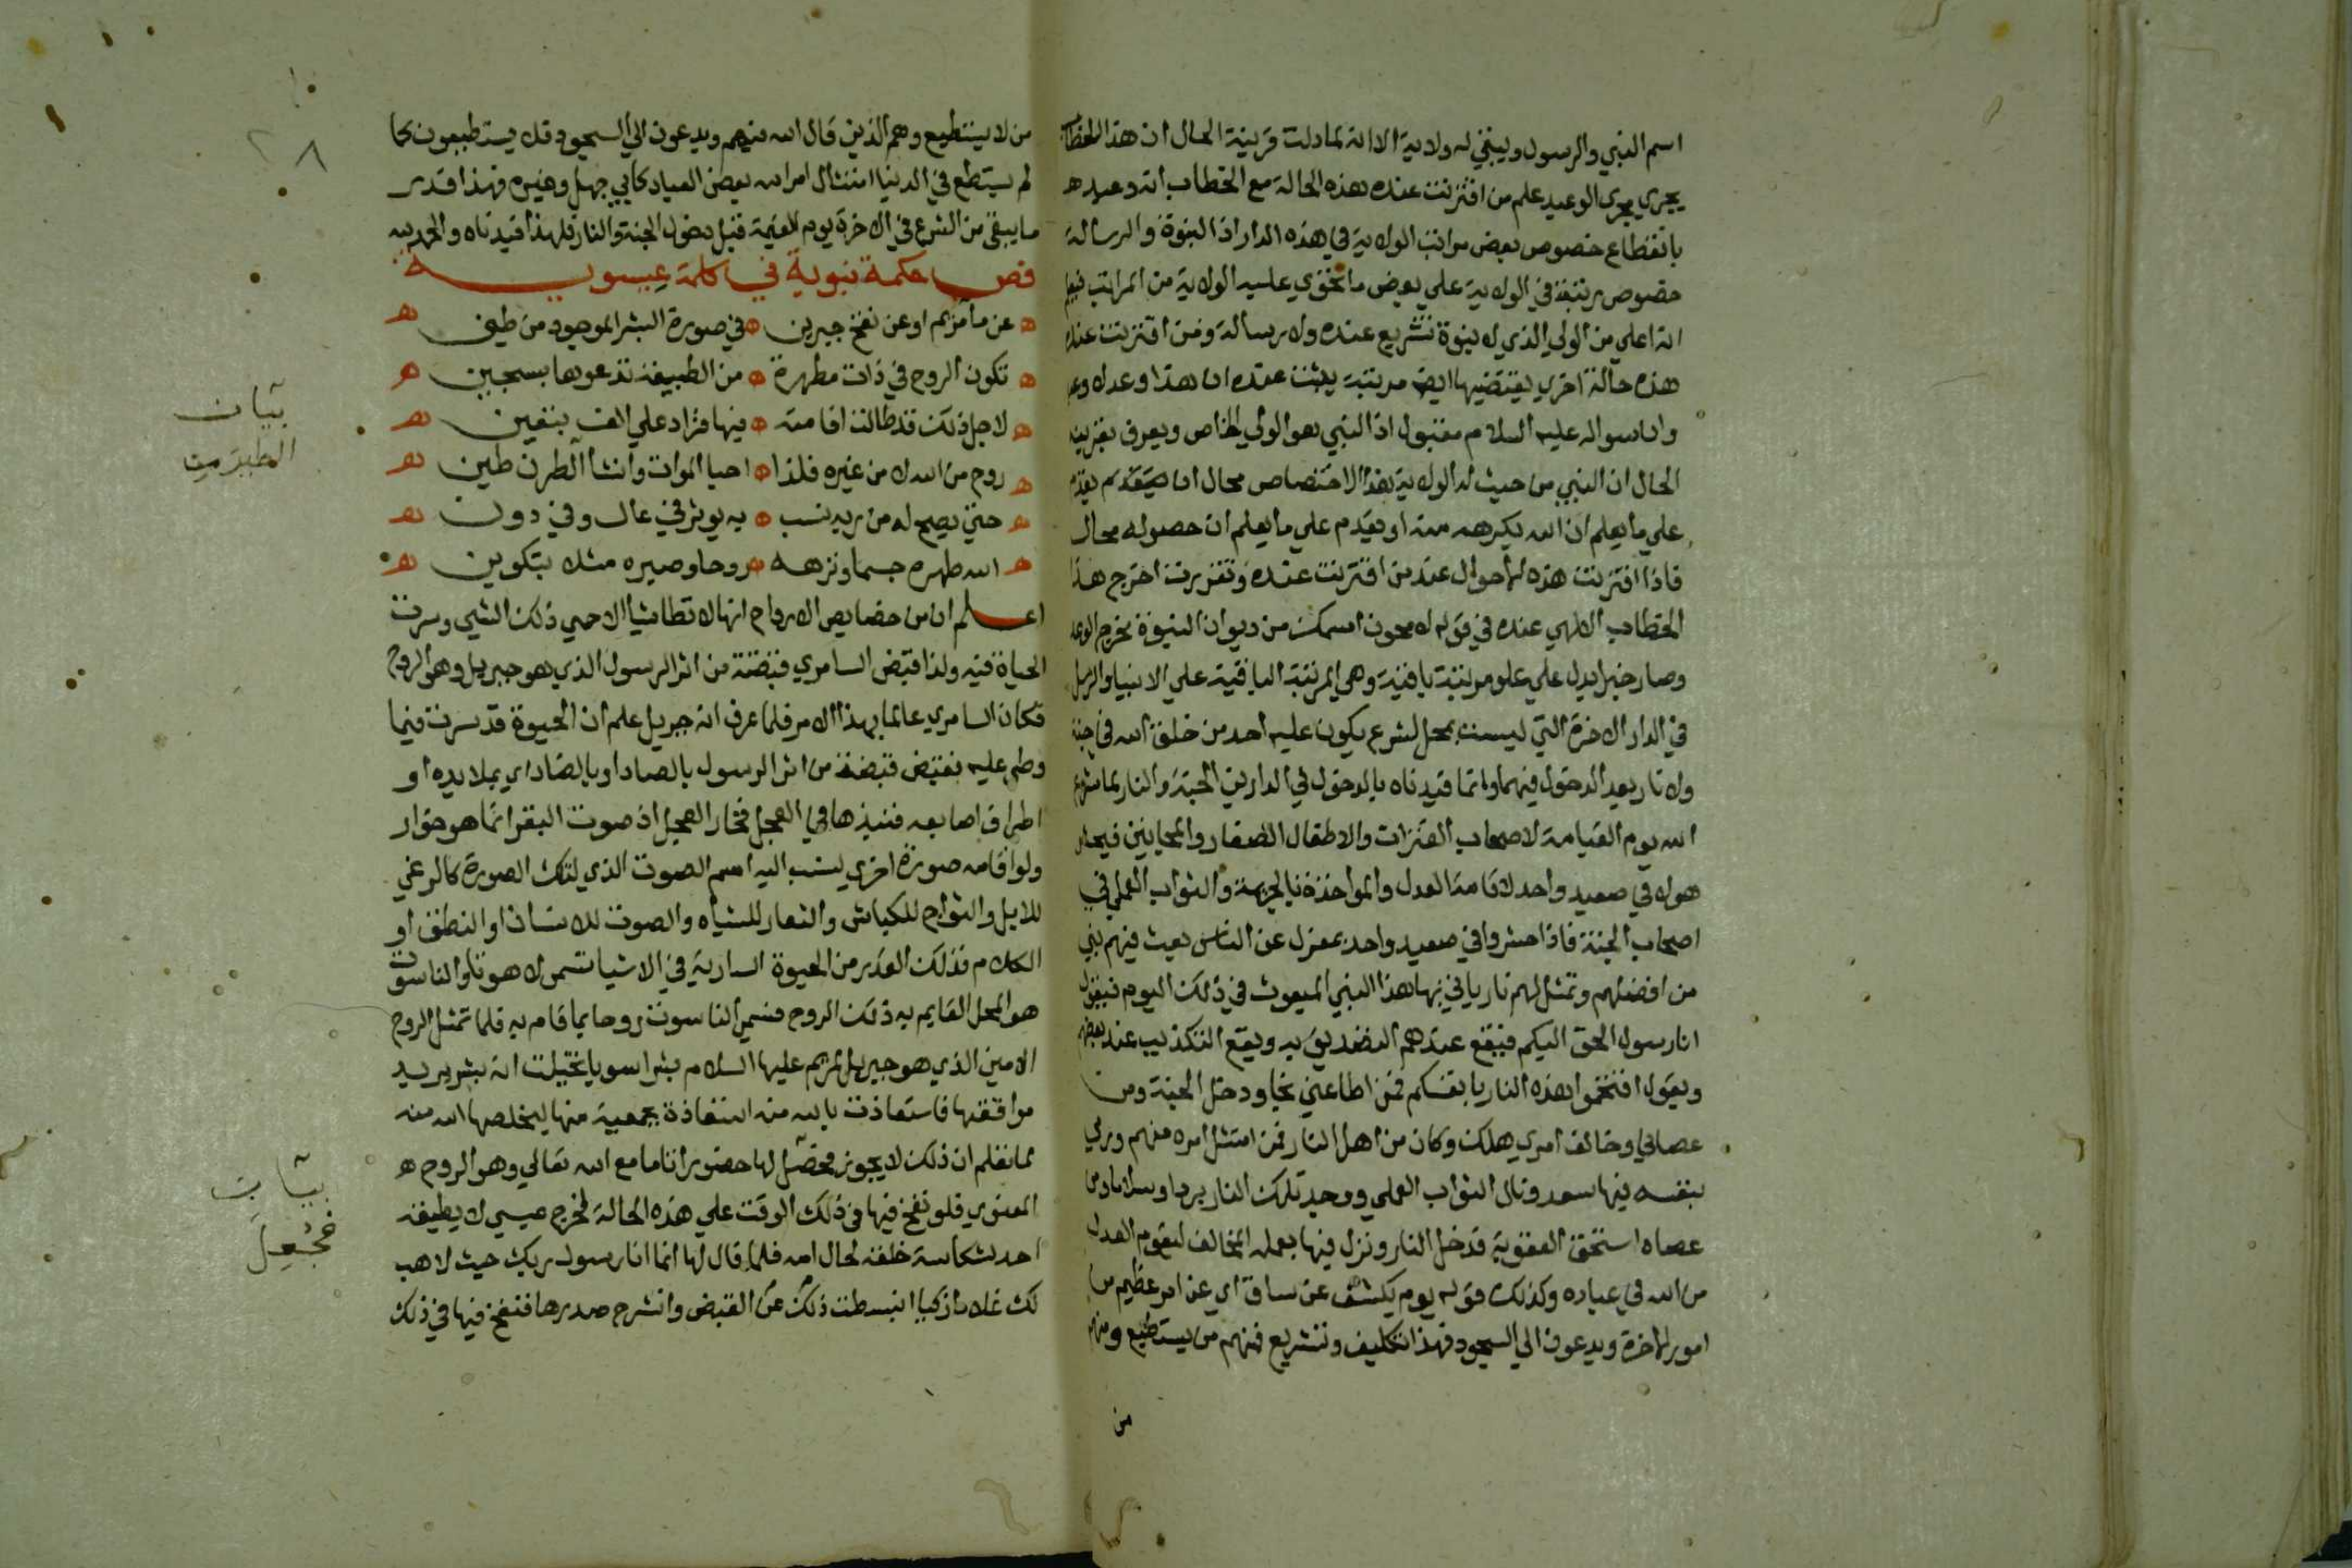 اسم النبي والرسول ويبقى له ولاية الا انه لما دلت قرينة الحال ان هذا الخطاب
يجري مجرى الوعيد علم من اقترنت عنده هذه الحالة مع الخطاب انه وعيد
بانقطاع خصوص بعض مراتب الولاية في هذه الدار اذ النبوة والرسالة
خصوص رتبة في الولاية على بعض ما تحوي عليه الولاية من المراتب فيعلم
انه اعلى من الولي الذي لا نبوة تشريع عنده ولا رسالة ومن اقترنت عنده
هذه حالة اخرى يقتضيها ايضا مرتبة يثبت عنده ان هذا وعد لا وعيد
وان سواله عليه السلام مقبول اذ النبي هو الولي الخاص ويعرف بقرينة
الحال ان النبي من حيث له الولاية هذا الاختصاص محال ان يقدم
على ما يعلم ان الله يكرهه منه او يقدم على ما يعلم ان حصوله محال
فاذا اقترنت هذه الاحوال عند من اقترنت عنده وتقررت اخرج هذا
الخطاب الالهي عنده في قوله لا محون اسمك من ديوان النبوة مخرج الوعد
وصار خبرا يدل على علو مرتبة باقية وهي المرتبة الباقية على الانبيا والرسل
في الدار الاخرة التي ليست بمحل لشرع يكون عليه احد من خلق الله في جنة
ولا نار بعد الدخول فيهما وانما قيدناه بالدخول في الدارين الجنة والنار لما شرع
الله يوم القيامة لاصحاب الفترات والاطفال الصغار والمجانين فيحشر
هولا في صعيد واحد لاقامة العدل والمواخذة بالجريمة والثواب العملي في
اصحاب الجنة فاذا حشروا في صعيد واحد بمعزل عن الناس بعث فيهم نبي
من افضلهم وتمثل لهم نار ياتي بها هذا النبي المبعوث في ذلك اليوم فيقول
انا رسول الحق اليكم فيقع عندهم التصديق به ويقع التكذيب عند بعضهم
ويقول اقتحموا هذه النار بانفسكم فمن اطاعني نجا ودخل الجنة ومن
عصاني وخالف امري هلك وكان من اهل النار فمن امتثل امره منهم ورمى
بنفسه فيها سعد ونال الثواب العملي ووجد تلك النار بردا وسلاما ومن
عصاه استحق العقوبة فدخل النار ونزل فيها بعمله المخالف ليقوم العدل
من الله في عباده وكذلك قوله يوم يكشف عن ساق اي عن امر عظيم من
امور الاخرة ويدعون الى السجود فهذا تكليف وتشريع فمنهم من يستطيع ومنهم
من
من لا يستطيع وهم الذين قال الله فيهم ويدعون الى السجود فلا يستطيعون كما
لم يستطع في الدنيا امتثال امر الله بعض العباد كابي جهل وغيره فهذا قدر
ما يبقى من الشرع في الاخرة يوم القيمة قبل دخول الجنة والنار فلهذا قيدناه والحمد لله
فص حكمة نبوية في كلمة عيسوية
عن ما مريم او عن نفخ جبرين ه في صورة البشر الموجود من طين
تكون الروح في ذات مطهرة ه من الطبيعة تدعوها بسجين
لاجل ذلك قد طالت اقامته ه فيها فزاد على الف بتعيين
روح من الله لا من غيره فلذا ه احيا الموات وانشا الطير من طين
حتى يصح له من ربه نسب ه به يوثر في عال وفي دون
الله طهره جسما ونزهه ه روحا وصيره مثلا بتكوين
اعلم ان من خصايص الارواح انها لا تطا شيا الا حيي ذلك الشي وسرت
الحياة فيه ولذا قبض السامري قبضة من اثر الرسول الذي هو جبريل وهو الروح
فكان السامري عالما بهذا الامر فلما عرف انه جبريل علم ان الحيوة قد سرت فيما
وطي عليه فقبض قبضة من اثر الرسول بالصاد او بالضاد اي بملا يده او
اطراف اصابعه فنبذها في العجل فخار العجل اذ صوت البقر انما هو خوار
ولو اقامه صورة اخرى لنسب اليه اسم الصوت الذي لتلك الصورة كالرغي
للابل والثواج للكباش والثغار للشياه والصوت للانسان او النطق او
الكلام فذلك القدر من الحيوة السارية في الاشيا تسمى لاهوتا والناسوت
هو المحل القايم به ذلك الروح فسمي الناسوت روحا بما قام به فلما تمثل الروح
الامين الذي هو جبريل لمريم عليها السلام بشرا سويا تخيلت انه بشر يريد
مواقعتها فاستعاذت بالله منه استعاذة بجمعية منها ليخلصها الله منه
لما تعلم ان ذلك لا يجوز فحصل لها حضور تام مع الله تعالى وهو الروح
المعنوي فلو نفخ فيها في ذلك الوقت على هذه الحالة لخرج عيسى لا يطيقه
احد لشكاسة خلقه لحال امه فلما قال لها انما انا رسول ربك حيث لاهب
لك غلاما زكيا انبسطت ذلك عن القبض وانشرح صدرها فنفخ فيها في ذلك
بيان
بيان
فجعل